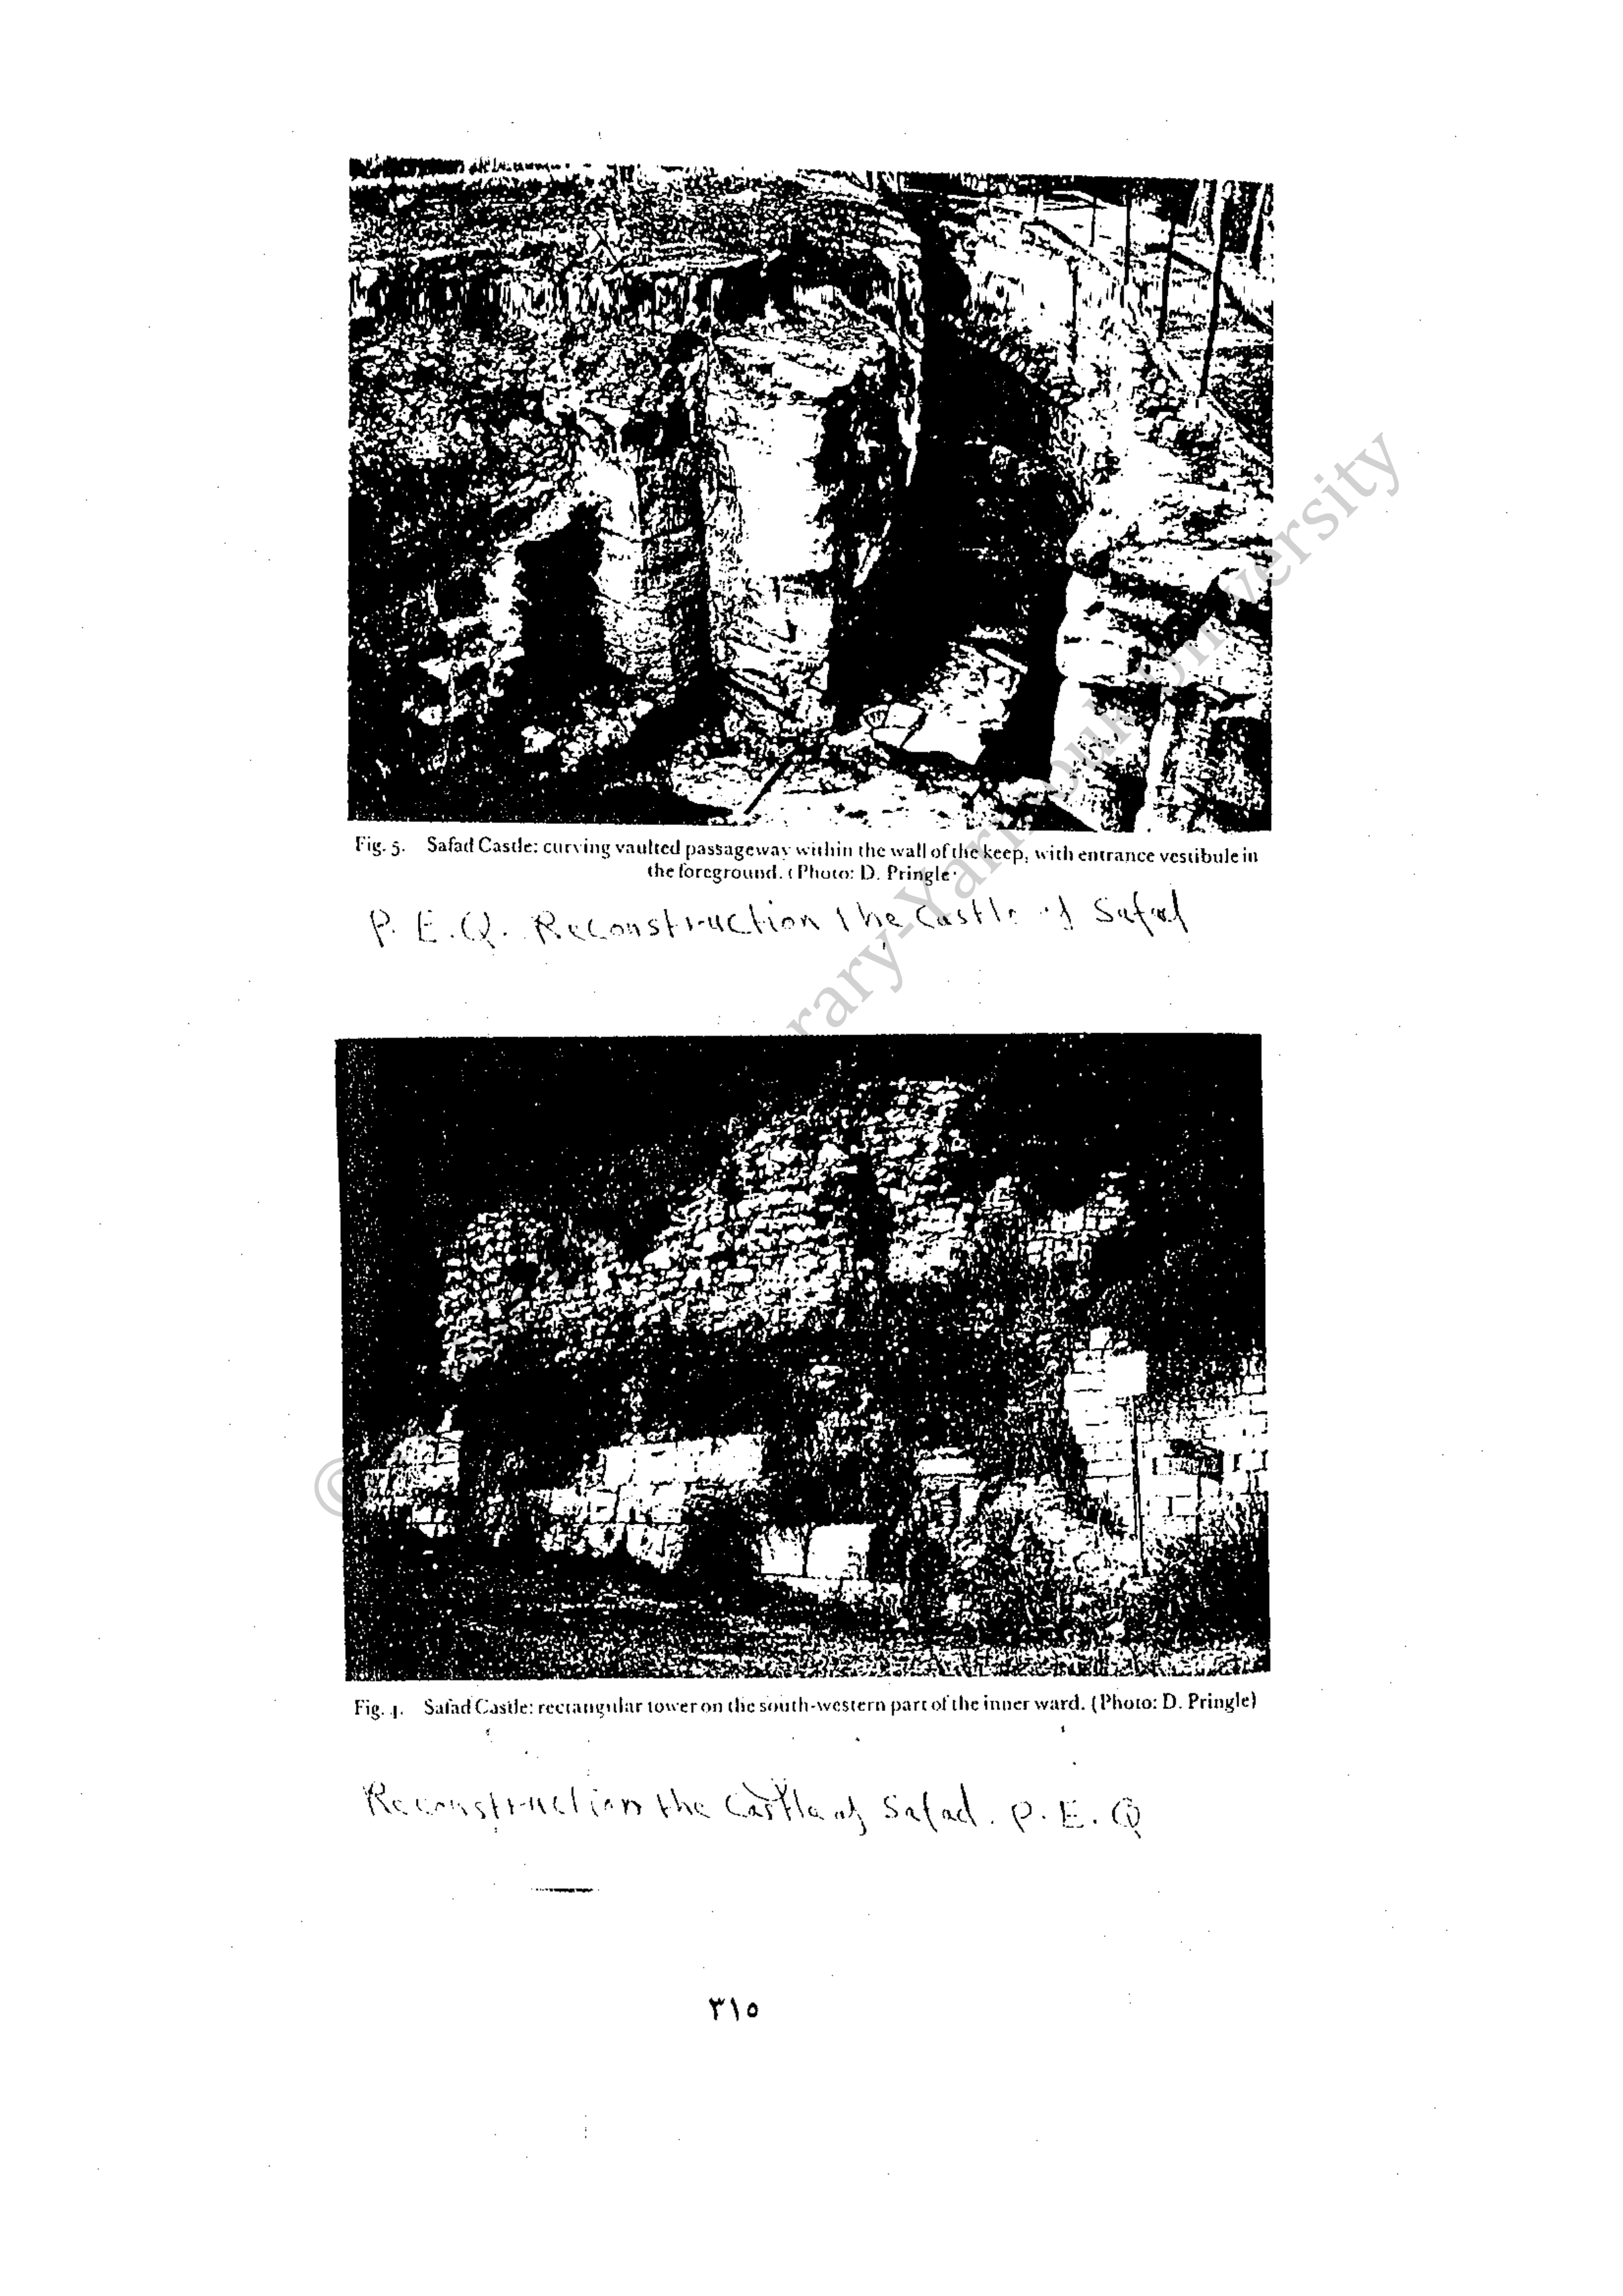 Fig. 5. Safad Castle: curving vaulted passageway within the wall of the keep, with entrance vestibule in
the foreground. (Photo: D. Pringle)
P. E. Q. Reconstruction the Castle of Safad
Fig. 4. Safad Castle: rectangular tower on the south-western part of the inner ward. (Photo: D. Pringle)
Reconstruction the Castle of Safad. P. E. Q
٣١٥